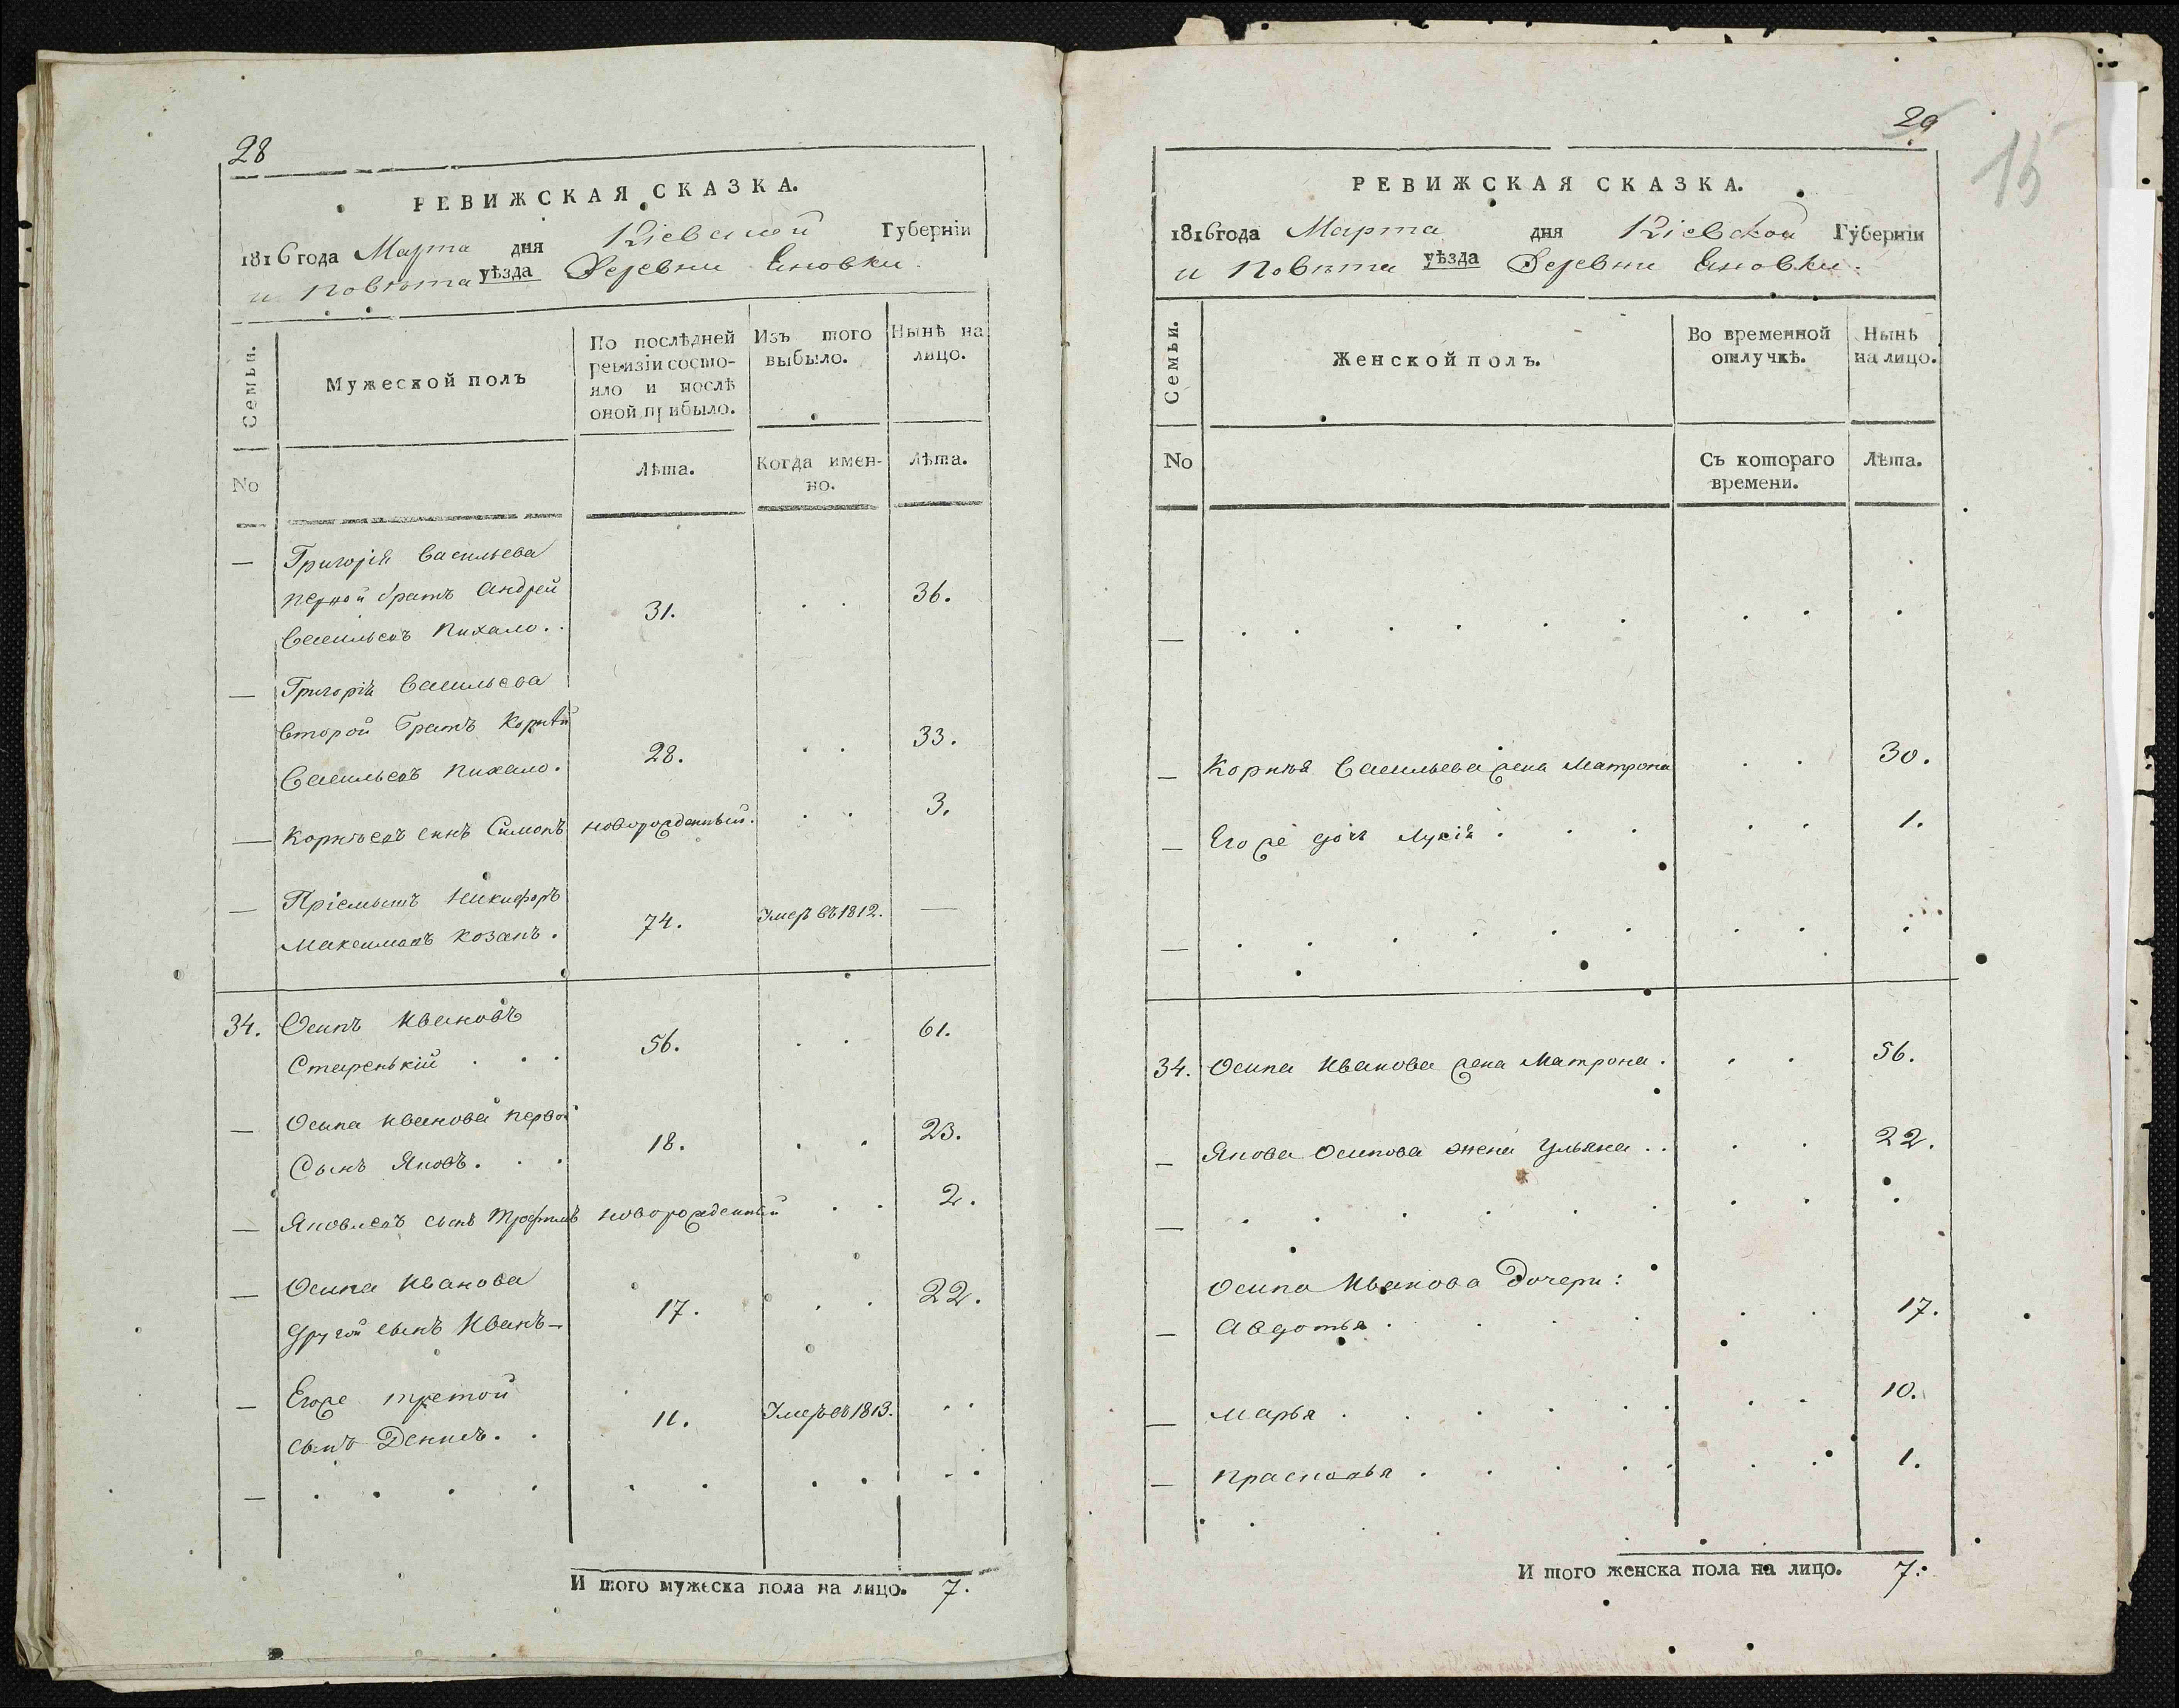 28
РЕВИЖСКАЯ СКАЗКА.
1816 года Марта дня Кіевской Губерніи
и Повѣта уѣзда Деревни Еновки.
Семьи.
Мужеской полъ
По послѣдней ревизіи состо-
яло и послѣ
оной прибыло.
Изъ того
выбыло.
Нынѣ на
лицо.
No
Лѣта.
Когда имен-
но.
Лѣта.
— Григорія Васильева
первой братъ Андрей 31. . . 36.
Васильевъ Пихало. .
— Григорія Васильева
второй братъ Корнѣй 28. . . 33.
Васильевъ Пихало.
— Корнѣевъ сынъ Симонъ новорожденный. . . 3.
— Пріемышъ Никифоръ
Максимовъ Козанъ. 74. Умеръ въ 1812. —
34. Осипъ Ивановъ
Старенькій . . . 56. . . 61.
— Осипа Иванова первой
Сынъ Яковъ. . . 18. . . 23.
— Яковлевъ сынъ Трофимъ новорожденный . . 2.
— Осипа Иванова
другой сынъ Иванъ — 17. . . 22.
— Егоже третой
сынъ Денисъ. . 11. Умеръ въ 1813. . .
— . . . . . . . . . .
И того мужеска пола на лицо. 7.
29
15
РЕВИЖСКАЯ СКАЗКА.
1816 года Марта дня Кіевской Губерніи
и Повѣта уѣзда Деревни Еновки.
Семьи.
Женской полъ.
Во временной
отлучкѣ.
Нынѣ
на лицо.
No
Съ котораго
времени.
Лѣта.
— . . . . . . . . .
— Корнѣя Васильева жена Матрона . . 30.
— Его же дочь Лукія . . . . . 1.
— . . . . . . . . .
34. Осипа Иванова жена Матрона. . . 56.
— Якова Осипова жена Ульяна . . . . 22.
— . . . . . . . . .
Осипа Иванова Дочери:
— Авдотья . . . . . . 17.
— Марья . . . . . . . . 10.
— Прасковья . . . . . . . 1.
И того женска пола на лицо. 7.